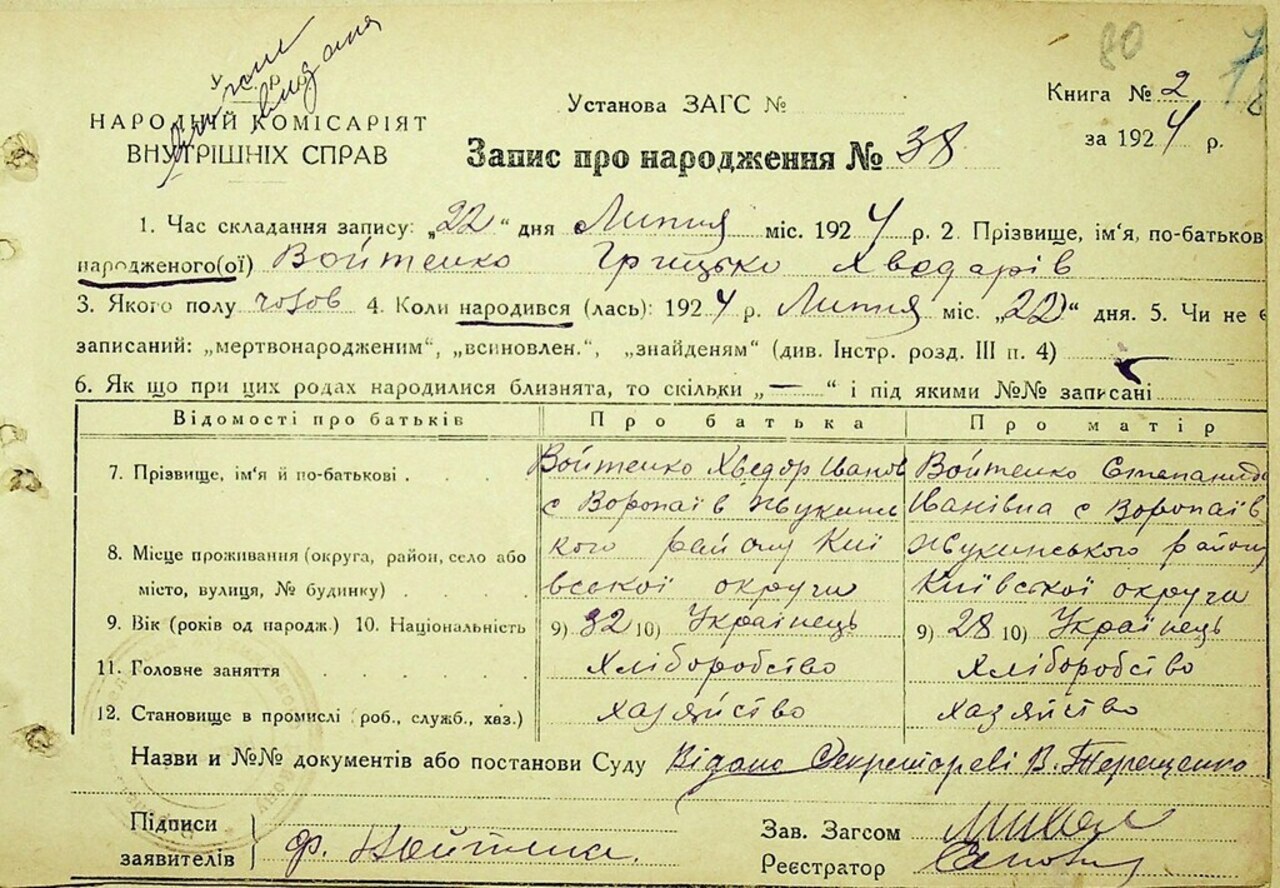 80
У.С.Р.Р.
видана
НАРОДНІЙ КОМІСАРІЯТ
ВНУТРІШНІХ СПРАВ
Установа ЗАГС №
Книга № 2
за 1924 р.
Запис про народження № 38
1. Час складання запису: „22“ дня Липня міс. 1924 р. 2. Прізвище, ім'я, по-батьков
народженого(ої) Войтенко Грицько Хведарів
3. Якого полу чолов 4. Коли народився (лась): 1924 р. Липня міс. „22“ дня. 5. Чи не є
записаний: „мертвонародженим“, „всиновлен.“, „знайденям“ (див. Інстр. розд. III п. 4)
6. Як що при цих родах народилися близнята, то скільки „—“ і під якими №№ записані
Відомості про батьків Про батька Про матір
7. Прізвище, ім'я й по-батькові Войтенко Хведор Іванов Войтенко Степанида
с Воропаїв Жукинсь Іванівна с Воропаїв
8. Місце проживання (округа, район, село або кого району Киї Жукинського району
місто, вулиця, № будинку) вської округи Київської округи
9. Вік (років од народж.) 10. Національність 9) 32 10) Українець 9) 28 10) Українець
11. Головне заняття Хліборобство Хліборобство
12. Становище в промислі (роб., служб., хаз.) хазяйство хазяйство
Назви и №№ документів або постанови Суду Видано Секретареві В. Терещенко
Підписи
заявителів Ф. Войтенко
Зав. Загсом
Реєстратор